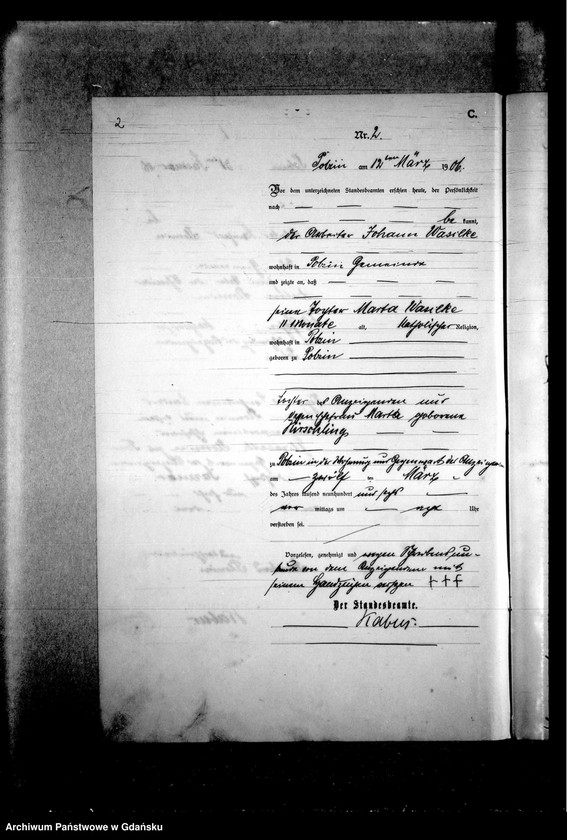 C.
2
Nr. 2.
Pobzin am 12ten März 1906.
Vor dem unterzeichneten Standesbeamten erschien heute, der Persönlichkeit
nach
be kannt,
der Arbeiter Johann Wasilke
wohnhaft in Pobzin Gemeinde
und zeigte an, daß
seine Tochter Martha Wasilke
11 Monate alt, katholischer Religion,
wohnhaft in Pobzin
geboren zu Pobzin
Tochter des Anzeigenden und
dessen Ehefrau Martha geborene
Hirschling
zu Pobzin in der Wohnung und Gegenwart des Anzeigenden
am zwölf ten März
des Jahres tausend neunhundert und sechs
vor mittags um acht Uhr
verstorben sei.
Vorgelesen, genehmigt und wegen Schreibensun-
kunde von dem Anzeigenden mit
seinem Handzeichen versehen †††
Der Standesbeamte.
Kabus.
Archiwum Państwowe w Gdańsku